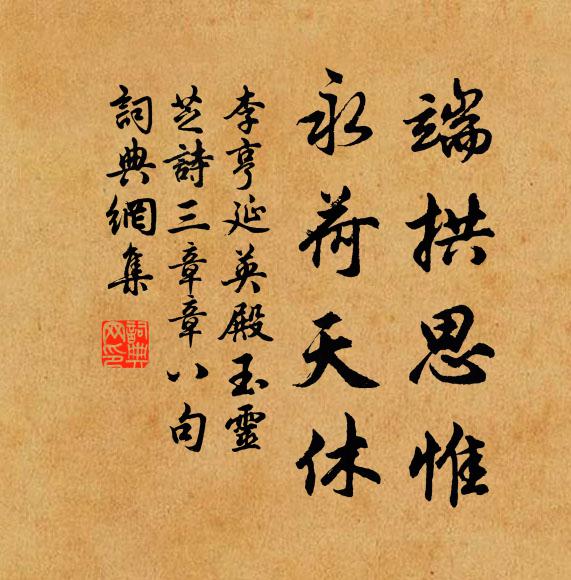 端拱思惟
永荷天休
李亨延英殿玉靈
芝詩三章章八句
詞典網集
詞典網印